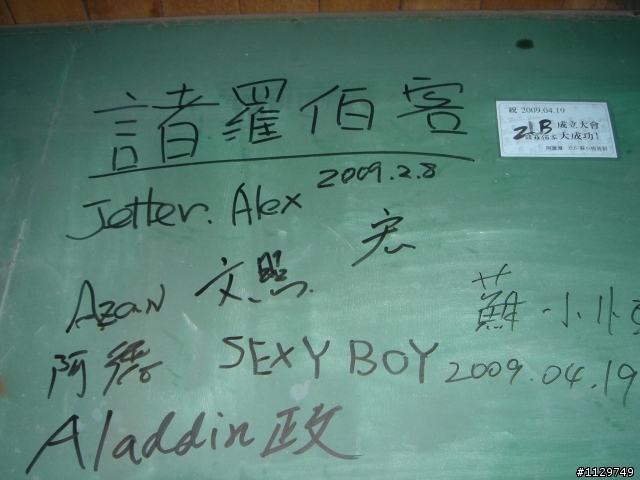 諸羅伯客
Jetter. Alex 2009.2.8
宏
Azan 文照
阿德 SEXY BOY
蘇小小
2009.04.19
Aladdin 政
祝 2009.04.19
ZLB 成立大會
大成功!
#1129749